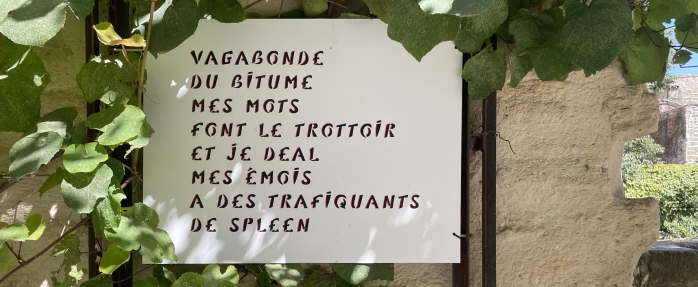 VAGABONDE
DU BITUME
MES MOTS
FONT LE TROTTOIR
ET JE DEAL
MES ÉMOIS
A DES TRAFIQUANTS
DE SPLEEN